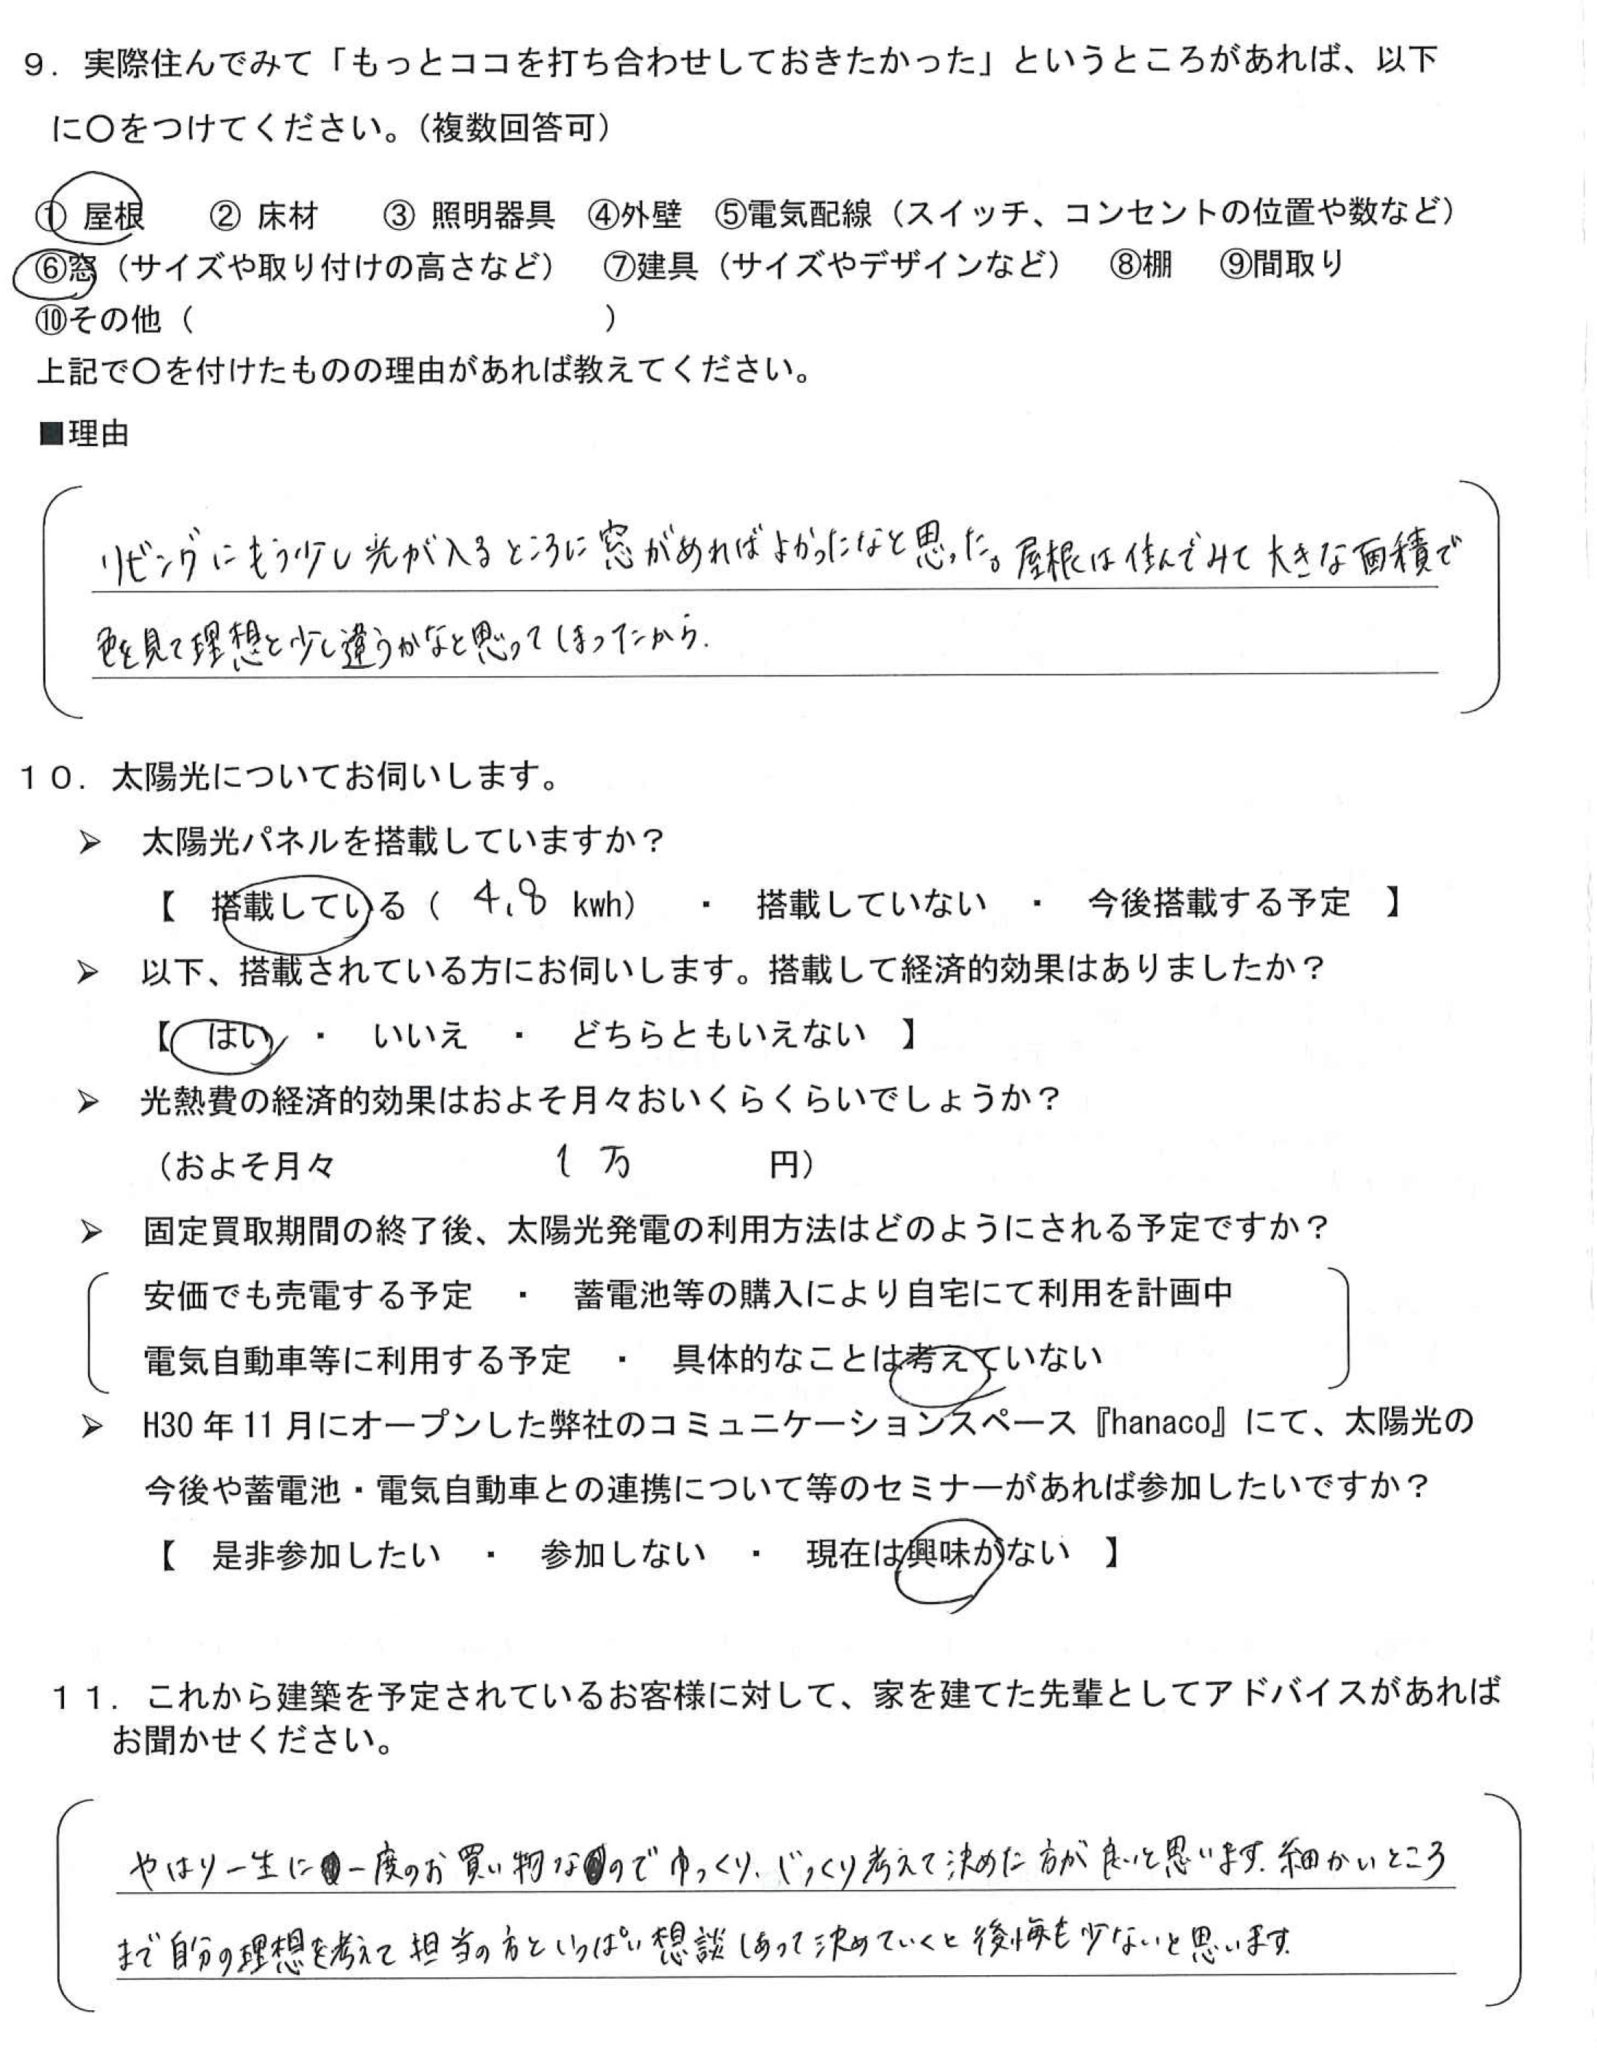 ９．実際住んでみて「もっとココを打ち合わせしておきたかった」というところがあれば、以下
に〇をつけてください。（複数回答可）
① 屋根　② 床材　③ 照明器具　④外壁　⑤電気配線（スイッチ、コンセントの位置や数など）
⑥窓（サイズや取り付けの高さなど）　⑦建具（サイズやデザインなど）　⑧棚　⑨間取り
⑩その他（　　　　　　　　　　　　　）
上記で〇を付けたものの理由があれば教えてください。
■理由
リビングにもう少し光が入るところに窓があればよかったなと思った。屋根は住んでみて大きな面積で
色を見て理想と少し違うかなと思ってしまったから.
１０．太陽光についてお伺いします。
➢ 太陽光パネルを搭載していますか？
【 搭載している（ 4.8 kwh）　・　搭載していない　・　今後搭載する予定 】
➢ 以下、搭載されている方にお伺いします。搭載して経済的効果はありましたか？
【 はい　・　いいえ　・　どちらともいえない 】
➢ 光熱費の経済的効果はおよそ月々おいくらくらいでしょうか？
（およそ月々　1万　円）
➢ 固定買取期間の終了後、太陽光発電の利用方法はどのようにされる予定ですか？
安価でも売電する予定　・　蓄電池等の購入により自宅にて利用を計画中
電気自動車等に利用する予定　・　具体的なことは考えていない
➢ H30 年 11 月にオープンした弊社のコミュニケーションスペース『hanaco』にて、太陽光の
今後や蓄電池・電気自動車との連携について等のセミナーがあれば参加したいですか？
【 是非参加したい　・　参加しない　・　現在は興味がない 】
１１．これから建築を予定されているお客様に対して、家を建てた先輩としてアドバイスがあれば
お聞かせください。
やはり一生に一度のお買い物なのでゆっくり、じっくり考えて決めた方が良いと思います.細かいところ
まで自分の理想を考えて担当の方といっぱい想談しあって決めていくと後悔も少ないと思います.